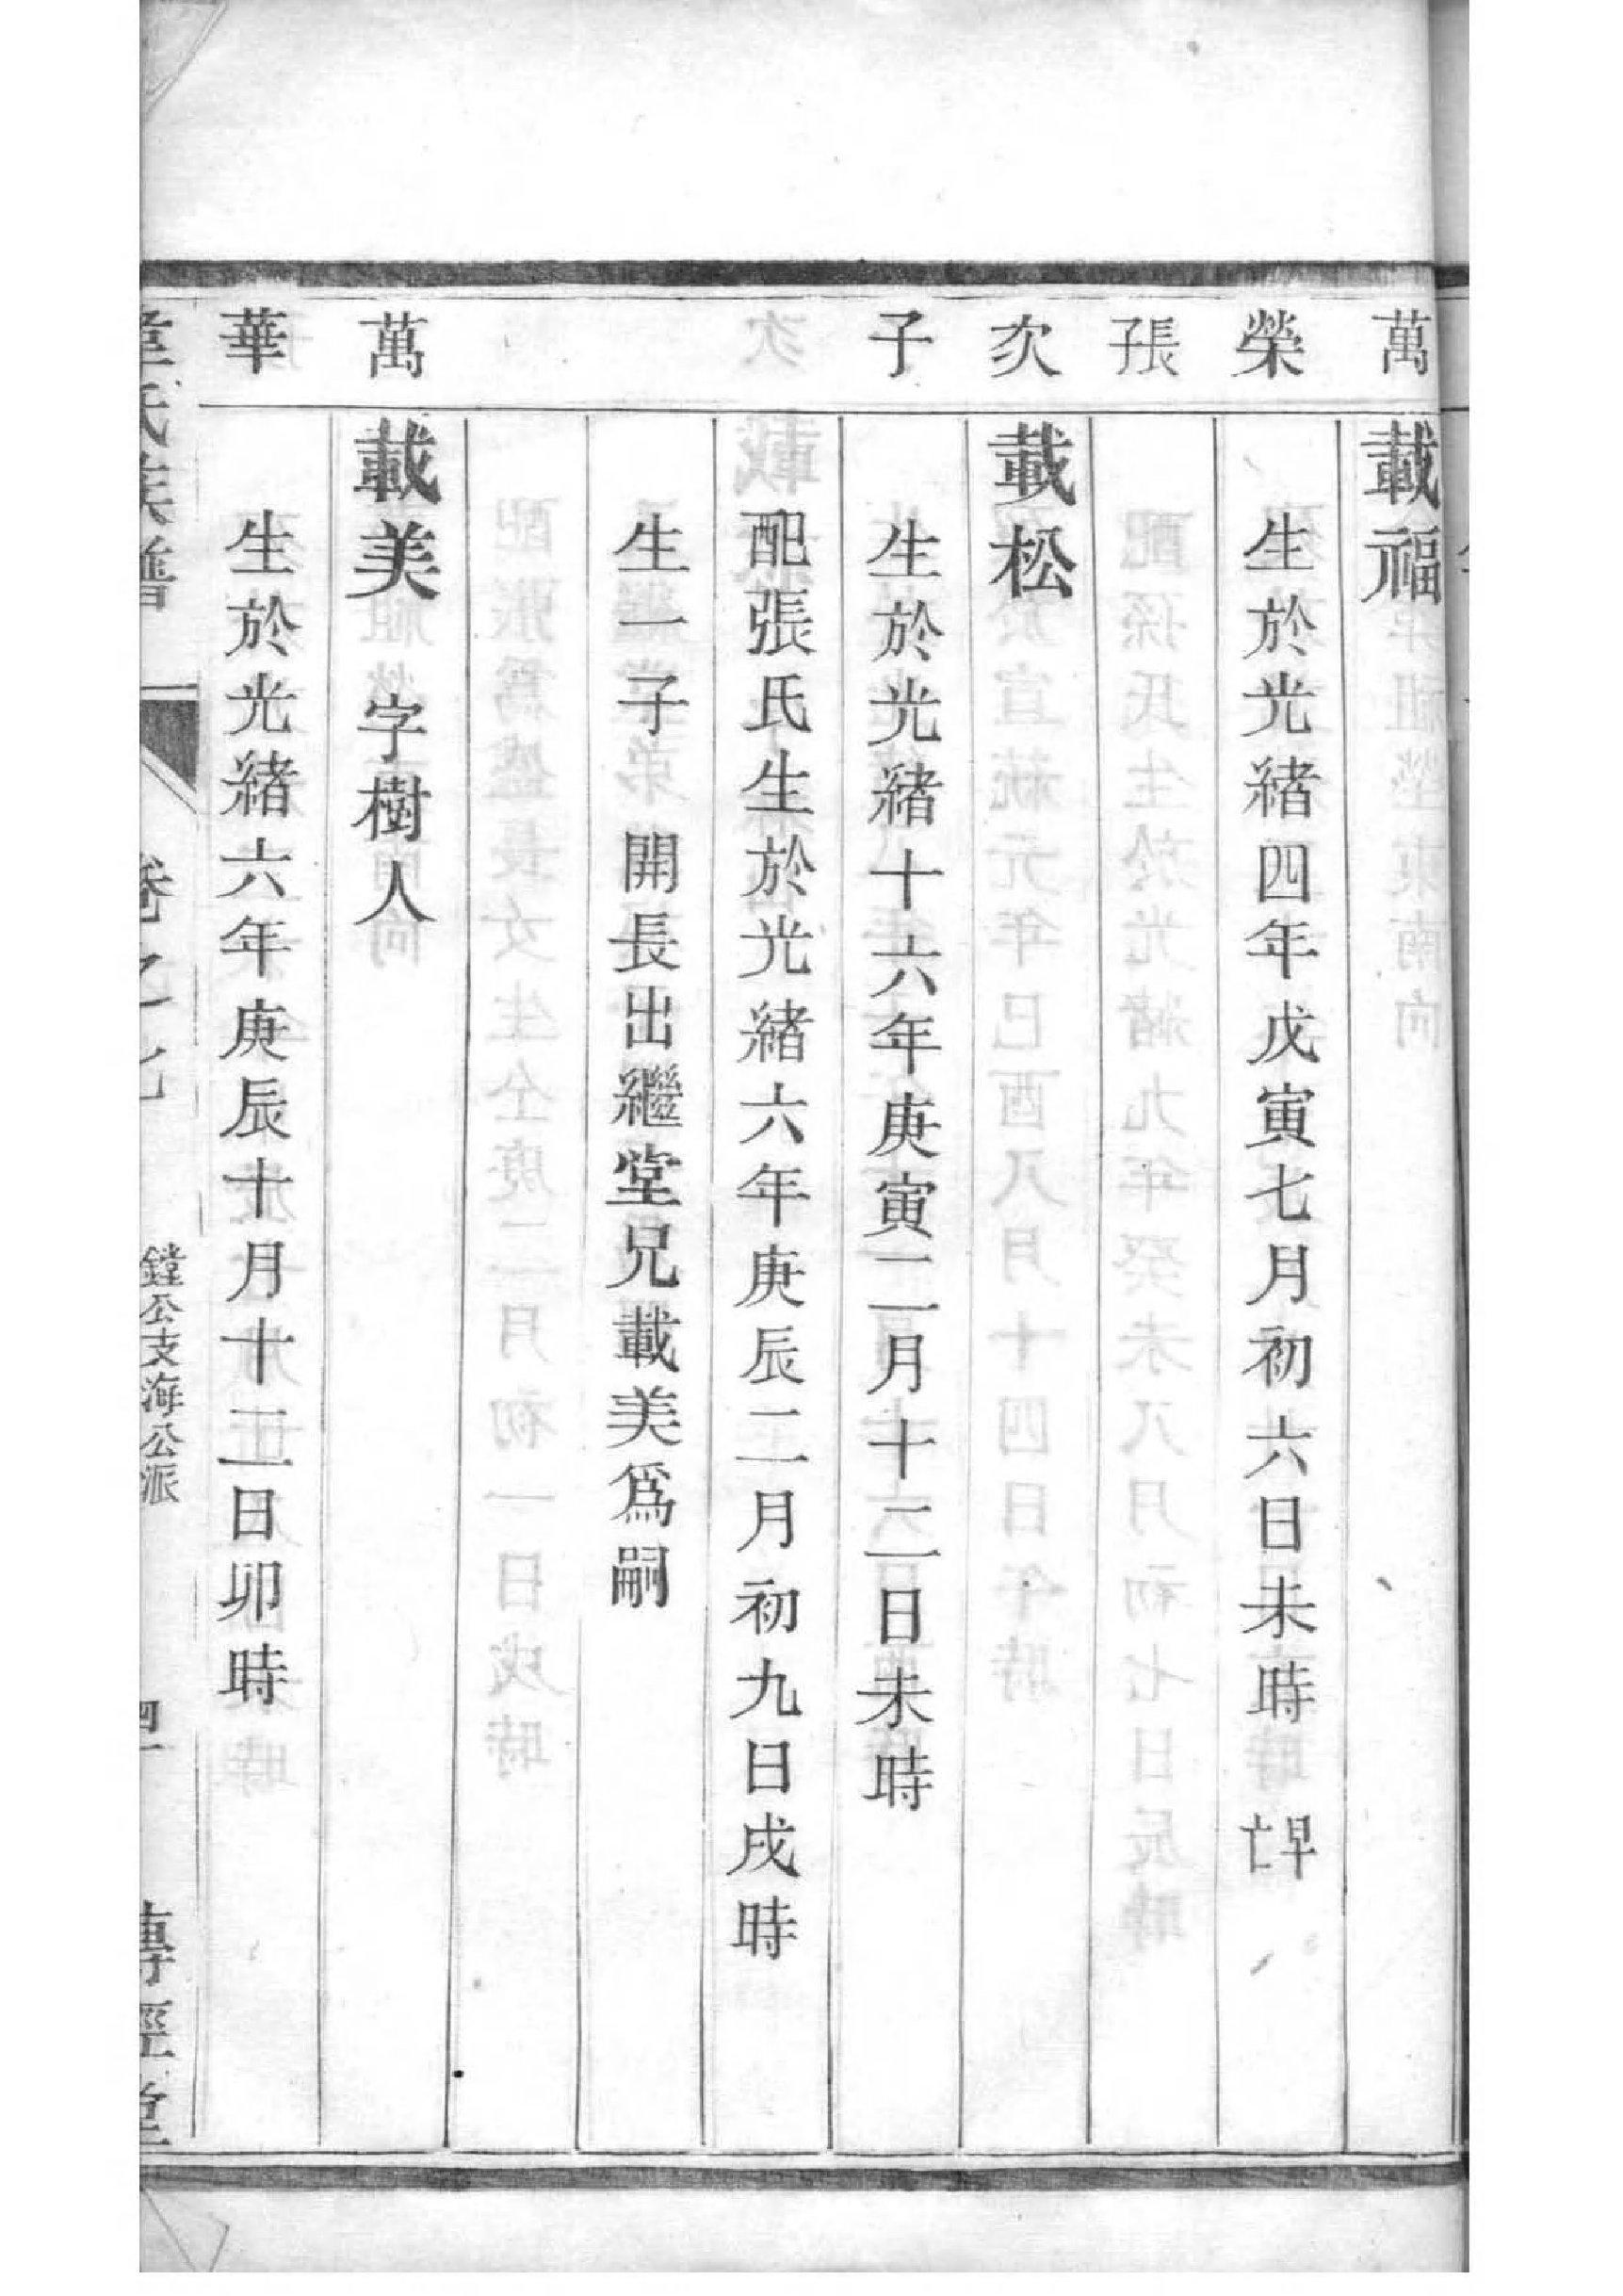 萬 載福
榮 生於光緒四年戊寅七月初六日未時 早亡
長子
次 載松
子 生於光緒十六年庚寅二月十二日未時
配張氏生於光緒六年庚辰二月初九日戌時
生一子 開長出繼堂兄載美爲嗣
萬 載美 字樹人
華 生於光緒六年庚辰十月十二日卯時
氏族譜 卷之七 鏜公支海公派 傳經堂